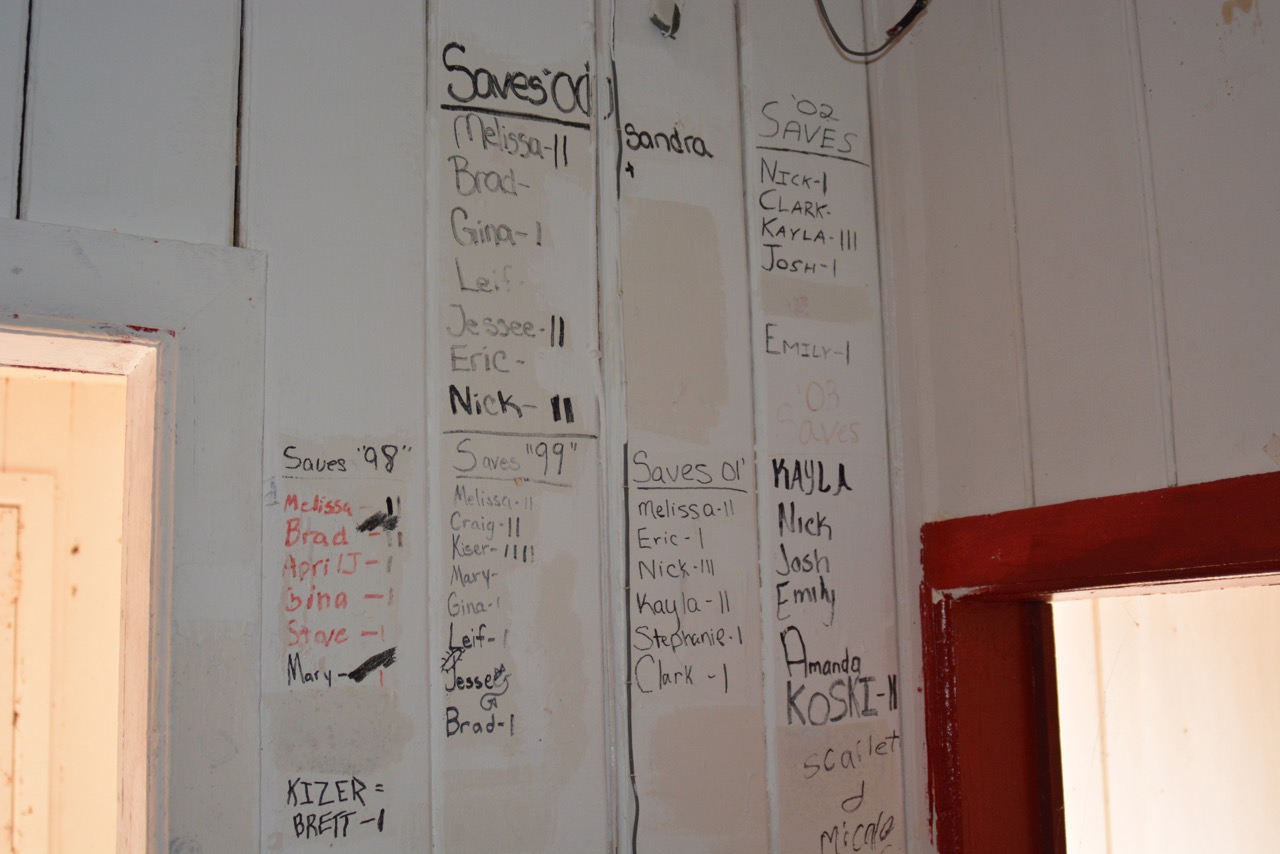 Saves "98"
Melissa - II
Brad - II
April J - I
Gina - I
Steve - I
Mary - I
KIZER =
BRETT - I
Saves '00
Melissa - II
Brad -
Gina - I
Leif -
Jessee - II
Eric -
Nick - II
Saves "99"
Melissa - II
Craig - II
Kiser - IIII
Mary -
Gina - I
Leif - I
Jesse
G
Brad - I
Sandra
+
Saves 01'
Melissa - II
Eric - I
Nick - III
Kayla - II
Stephanie - I
Clark - I
'02
SAVES
NICK - I
CLARK -
KAYLA - III
JOSH - I
EMILY - I
'03
Saves
KAYLA
Nick
Josh
Emily
Amanda
KOSKI - II
Scarlet